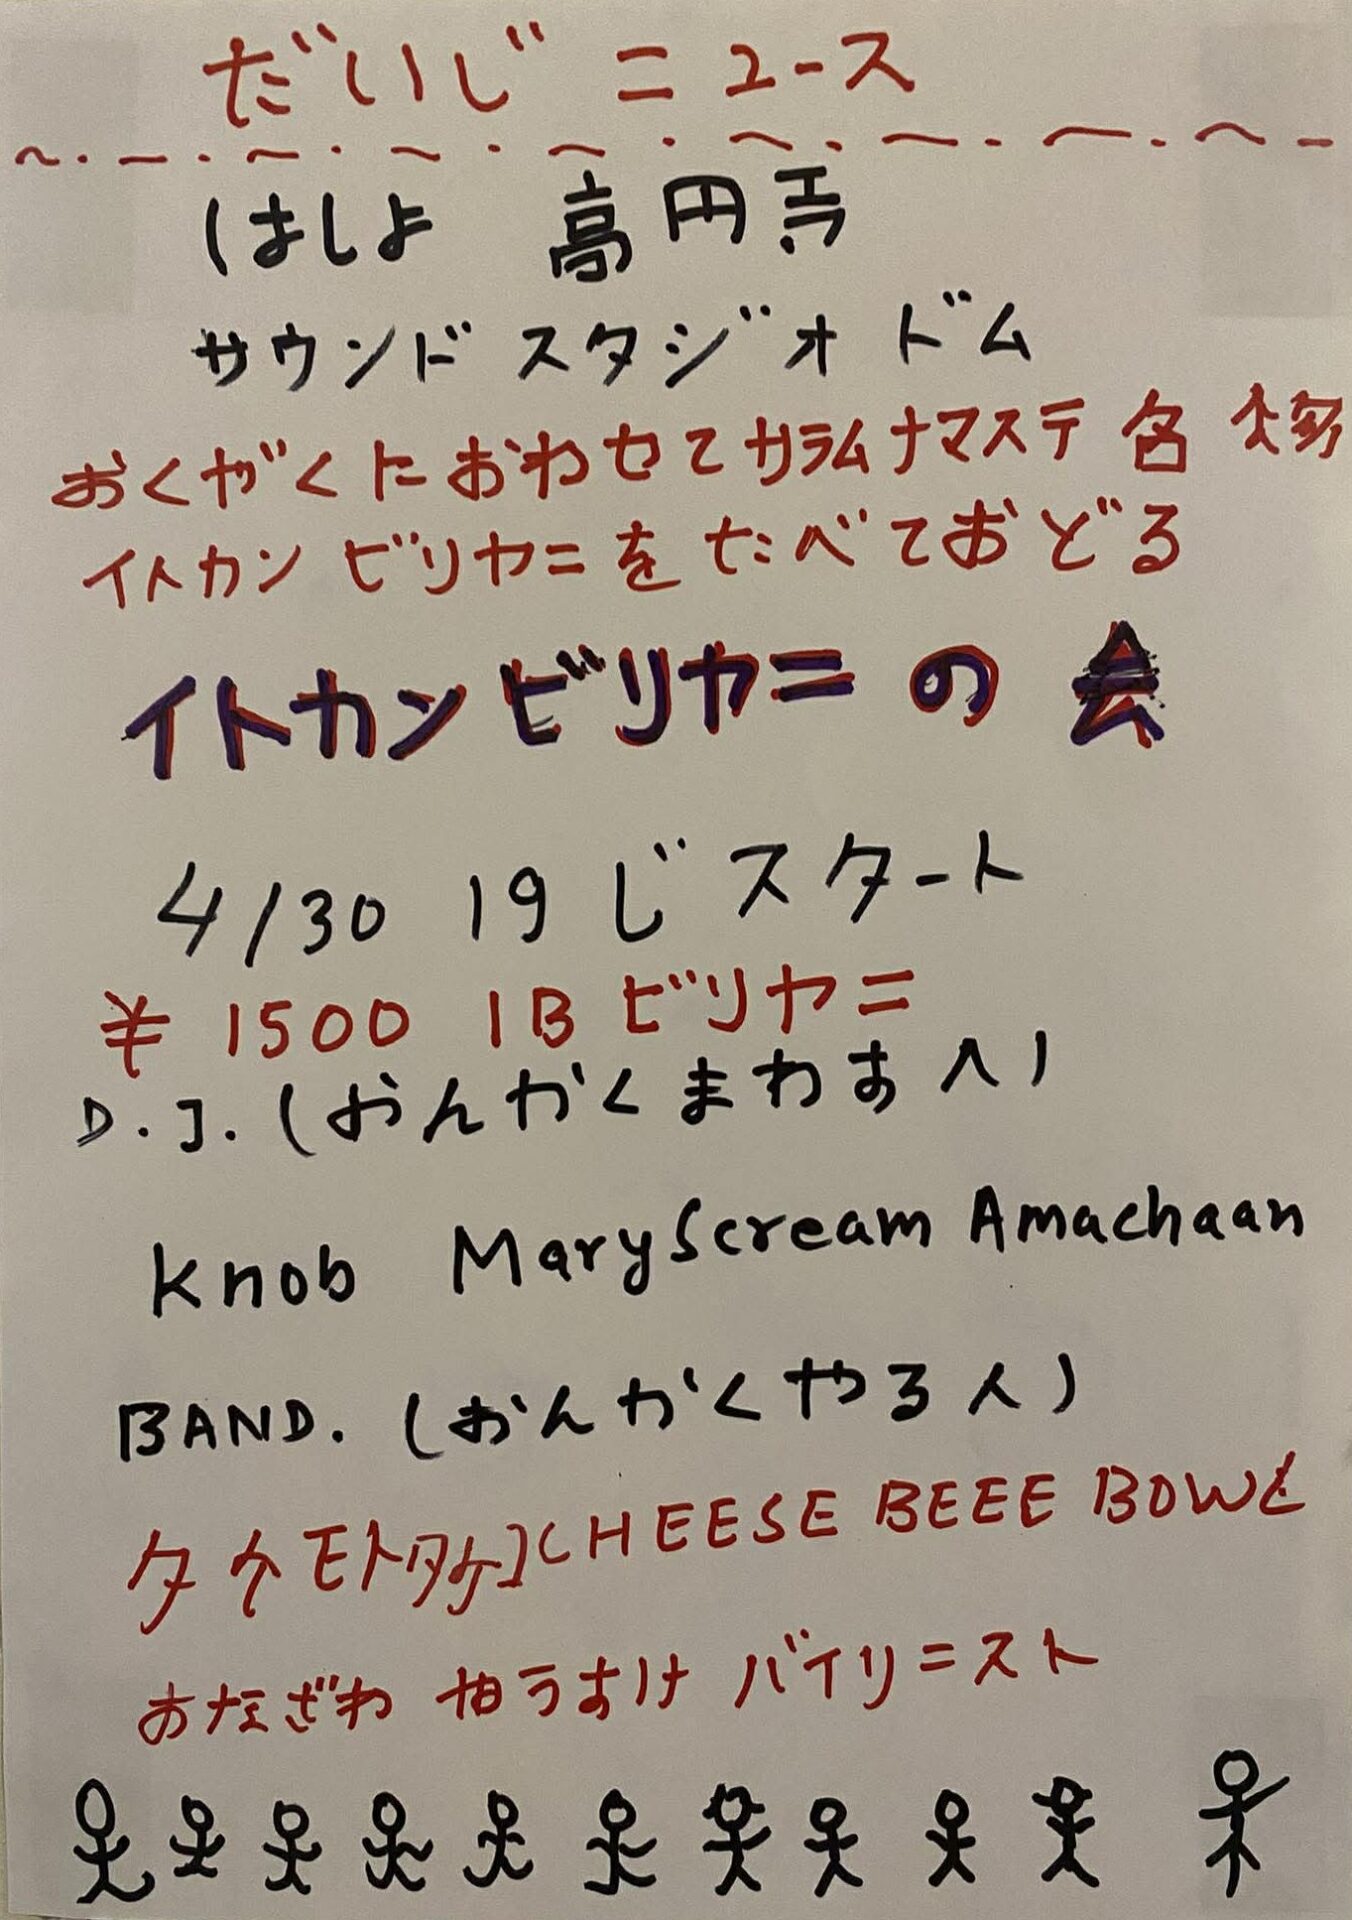 だいじ ニュース
ばしよ 高円寺
サウンド スタジオ ドム
おくがくにおわせてカラムナマステ 名
イトカン ビリヤニを たべて おどる
イトカンビリヤニ の 会
4/30 19 じスタート
¥ 1500 1B ビリヤニ
D.J. (おんがくまわす人)
Knob MaryScream Amachaan
BAND. (おんがくやる人)
タケモトタケコCHEESE BEEE BOWL
おなざわ ゆうすけ バイリニスト